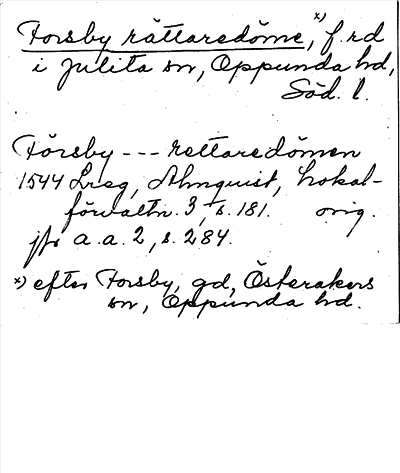 Forsby rättaredöme, x) f.rd
i Julita sn, Oppunda hd,
Söd. l.
Försby --- rettaredömen
1544 Lreg, Almquist, Lokal-
förvaltn. 3, s. 181. orig.
jfr a. a. 2, s. 284.
x) efter Forsby, gd, Österåkers
sn, Oppunda hd.